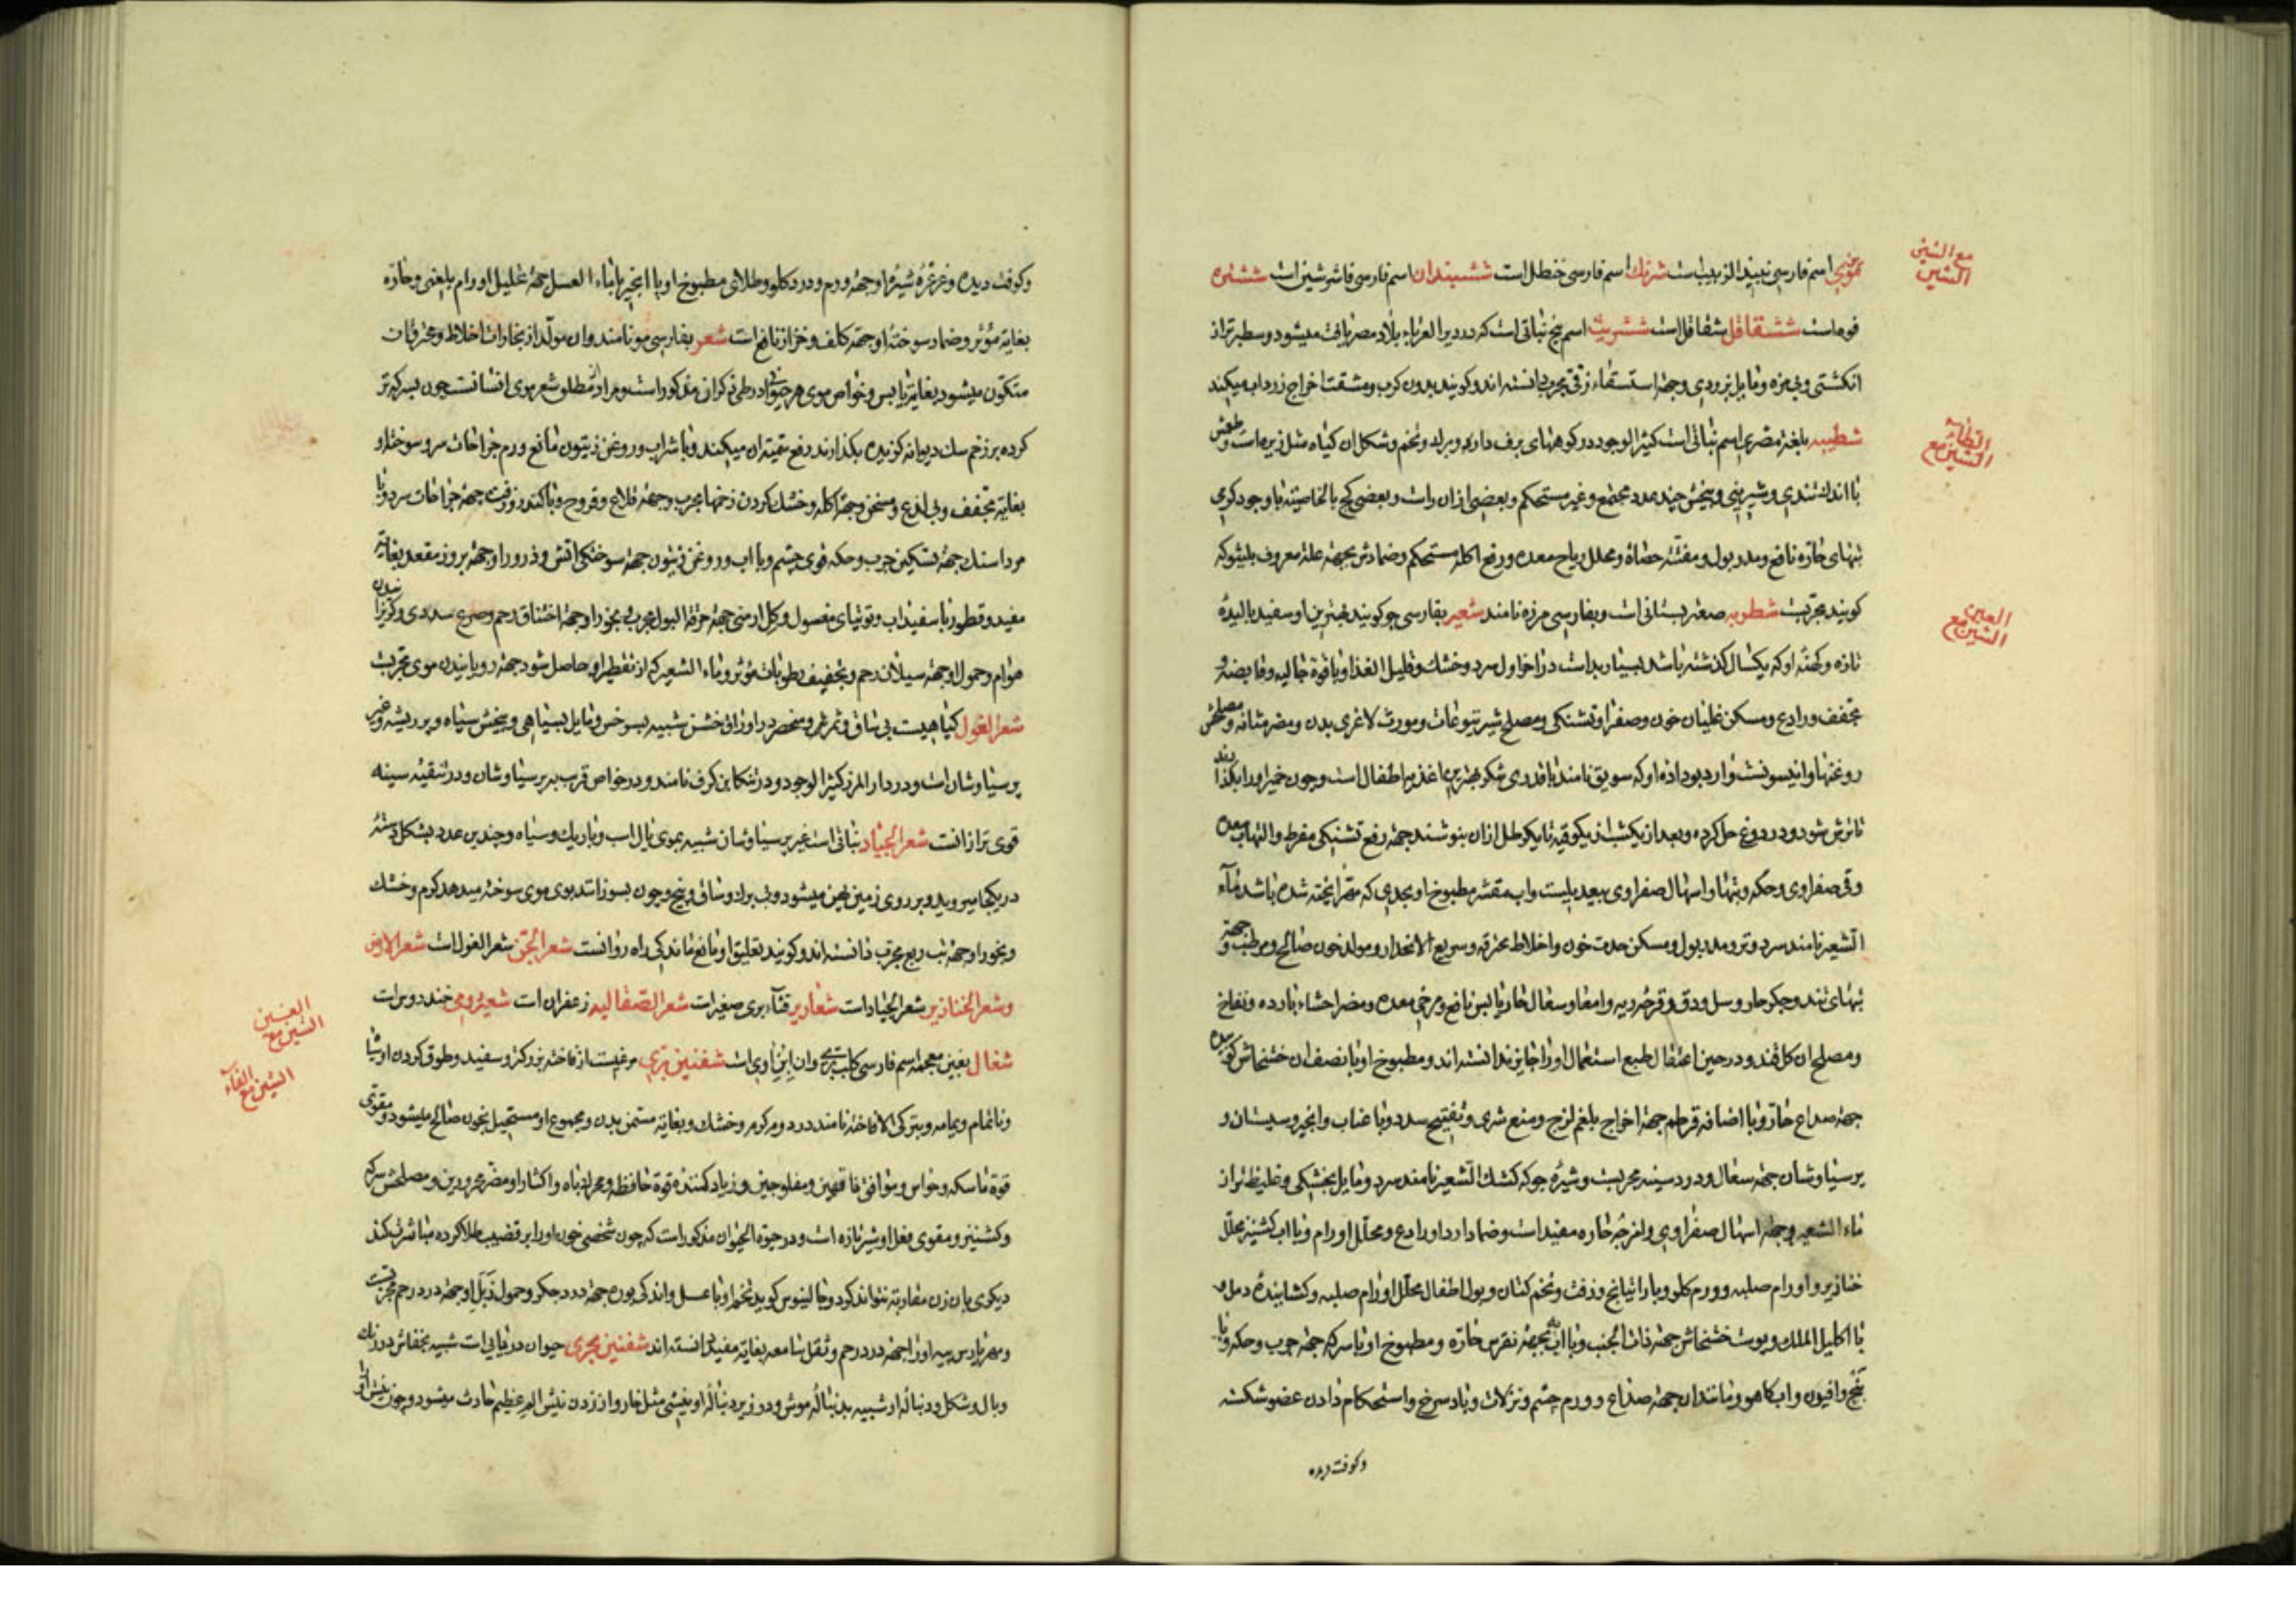 مع الشین
الشین
عموری اسم فارسی نبیذ الزبیب است شرنک اسم فارسی حنظل است ششبندان اسم فارسی فاشرشین است ششتره
فوه است ششقاقل شقاقل است ششریث اسم بیخ نباتی است که در دیر الغرباء بلاد مصر یافت میشود و سطبرتر از
انکشتی و بی مزه و مایل بزردی و جهة استسقاء زقی مجرب دانسته اند و کویند بدون کرب و مشقت اخراج زرداب میکند
الطاء
الشین مع
شطیبه بلغة مصری اسم نباتی است کثیر الوجود در کوههای برف دار و بی برک و تخم و شکل ان کیاه مثل زیره است و طعمش
با اندک تندی و شیرینی و بیخش چند عدد مجتمع و غیر مستحکم و بعضی از ان راست و بعضی کج بالخاصیة با وجود کرمی
تبهای حاره نافع و مدر بول و مفتت حصاة و محلل ریاح معده و رفع اکله مستحکم و ضمادش بجهة علة معروف بلیثوکه
العین
الشین مع
کویند مجربست شطوبه صعتر بستانی است و بفارسی مرزه نامند شعیر بفارسی جو کویند بهترین او سفید بالیده
تازه و کهنه او که یکسال کذشته باشد بسیار بد است در اخر اول سرد و خشک و قلیل الغذا و با قوة جالیه و قابضه و
مجفف و رادع و مسکن غلیان خون و صفرا و تشنکی و مصلح شیر یتوعات و مورث لاغری بدن و مضر مثانه و مصلحش
روغنها و انیسونست و ارد بو داده او که سویق نامند با قدری شکر بهترین اغذیه اطفال است و چون خمیر او را بکذارند
تا ترش شود و در دوغ حل کرده و بعد از یکشب از یکوقیه تا یکرطل از ان بنوشند جهة رفع تشنکی مفرط و التهاب معده
و قی صفراوی و حکه و تبها و اسهال صفراوی بیعدیلست و اب مقشر مطبوخ او بحدی که مهرا پخته شده باشد ماء
الشعیر نامند سرد و تر و مدر بول و مسکن حدت خون و اخلاط محترقه و سریع الانحدار و مولد خون صالح و مرطب و جهة
تبهای تند و جکر حار و سل و دق و قرحه ریه و امعا و سعال حار یابس نافع و مرخی معده و مضر احشاء بارده و نفاخ
و مصلح ان کلقند و در حین اعتقال طبع استعمال او را جایز ندانسته اند و مطبوخ او با نصف ان خشخاش کوبیده
جهة صداع حار و با اضافه قرطم جهة اخراج بلغم لزج و منع شری و تفتیح سدد و با عناب و انجیر و سپستان و
پرسیاوشان جهة سعال و درد سینه مجربست و شیره جو که کشک الشعیر نامند سرد و مایل بخشکی و غلیظ تر از
ماء الشعیر و جهة اسهال صفراوی و امزجه حاره مفید است و ضماد ارد او رادع و محلل اورام و با اب کشنیز محلل
خنازیر و اورام صلبه و ورم کلو و با راتیانج و زفت و تخم کتان و بول اطفال محلل اورام صلبه و کشاینده دمل و
با اکلیل الملک و پوست خشخاش جهة ذات الجنب و با اب به جهة نقرس حاره و مطبوخ او با سرکه جهة جرب و حکه و با
بنج و افیون و اب کاهو و مانند ان جهة صداع و ورم چشم و نزلات و باد سرخ و استحکام دادن عضو شکسته
و کوفت دیده
و کوفت دیده و غرغره شیره او جهة ورم و درد کلو و طلای مطبوخ او با انجیر با ماء العسل جهة تحلیل اورام بلغمی و حاره
بغایة مؤثر و ضماد سوخته او جهة کلف و خزاز نافع است شعر بفارسی مو نامند و ان مولد از بخارات اخلاط و محترقات
متکون میشود بغایة یابس و خواص موی هر حیوانی در طی ذکر ان مذکور است و مراد از مطلق شعر موی انسانست چون بسرکه تر
کرده بر زخم سک دیوانه کزیده بکذارند رفع سمیة ان میکند و با شراب و روغن زیتون مانع ورم جراحات سر و سوخته او
بغایة مجفف و بی لذع و مسخن و جهة اکله و خشک کردن زخمها مجرب و جهة قلاع و قروح و با کندر و زفت جهة جراحات سر و با
مرداسنک جهة تسکین جرب و حکه قوی چشم و با اب و روغن زیتون جهة سوختکی اتش و ذرور او جهة بروز مقعد بغایة
مفید و قطور با سفیداب و توتیای مغسول و کل ارمنی جهة حرقة البول مجرب بخور او جهة اختناق رحم و صرع سددی و کریزانیدن
هوام و حمول او جهة سیلان رحم و تجفیف رطوبات مؤثر و ماء الشعیر که از تقطیر او حاصل شود جهة رویانیدن موی مجربست
شعر الغول کیاهیست بی ساق و ثمر و منحصر در اوراق خشن شبیه بسرخس و مایل بسیاهی و بیخش سیاه و پر ریشه و غیر
پرسیاوشان است و در دار المرز کثیر الوجود و در تنکابن کرف نامند و در خواص قریب بپرسیاوشان و در تنقیه سینه
قوی تر از انست شعر الجیاد نباتی است غیر پرسیاوشان شبیه بموی یال اسب و باریک و سیاه و چندین عدد بشکل دسته
در یکجا میروید و بر روی زمین پهن میشود و بی برک و ساق و بیخ و چون بسوزانند بوی موی سوخته میدهد کرم و خشک
و بخور او جهة تب ربع مجرب دانسته اند و کویند تعلیق او مانع ماندکی راه روانست شعر الجن شعر الغول است شعر الارض
و شعر الخنازیر شعر الجیاد است شعاریر قثاء بری صغیر است شعر الصقالبه زعفران است شعیر رومی خندروس است
الغین
الشین مع
شغال بغین معجمه اسم فارسی کلب بری و ان ابن آوی است شفنین بری مرغیست از فاخته بزرکتر و سفید و طوق کردن او سیاه
الشین مع الفاء
و بانمام و یمامه و بترکی الا فاخته نامند در دوم کرم و خشک و بغایة مسمن بدن و مجموع او مستحیل بخون صالح میشود و مقوی
قوة ماسکه و حواس و موافق ناقهین و مفلوجین و زیاد کننده قوة حافظه و محرک باه و اکثار او مضر محرورین و مصلحش سرکه
و کشنیز و مقوی فعل او شیر تازه است و در حیوة الحیوان مذکور است که چون شخصی خون او را بر قضیب طلا کرده مباشرت کند
دیکری با ان زن مقاربة نتواند کرد و جالینوس کوید تخم او با عسل و اندکی بوره جهة درد جکر و حمول زبل او جهة درد رحم مجربست
شفنین بحری حیوان دریایی است شبیه بخفاش در رنک
و بال و شکل و دنباله او شبیه بدنباله موش و در زیر دنباله او نیشی مثل خار و از زدن نیش الم عظیم حادث میشود و چون نیش او